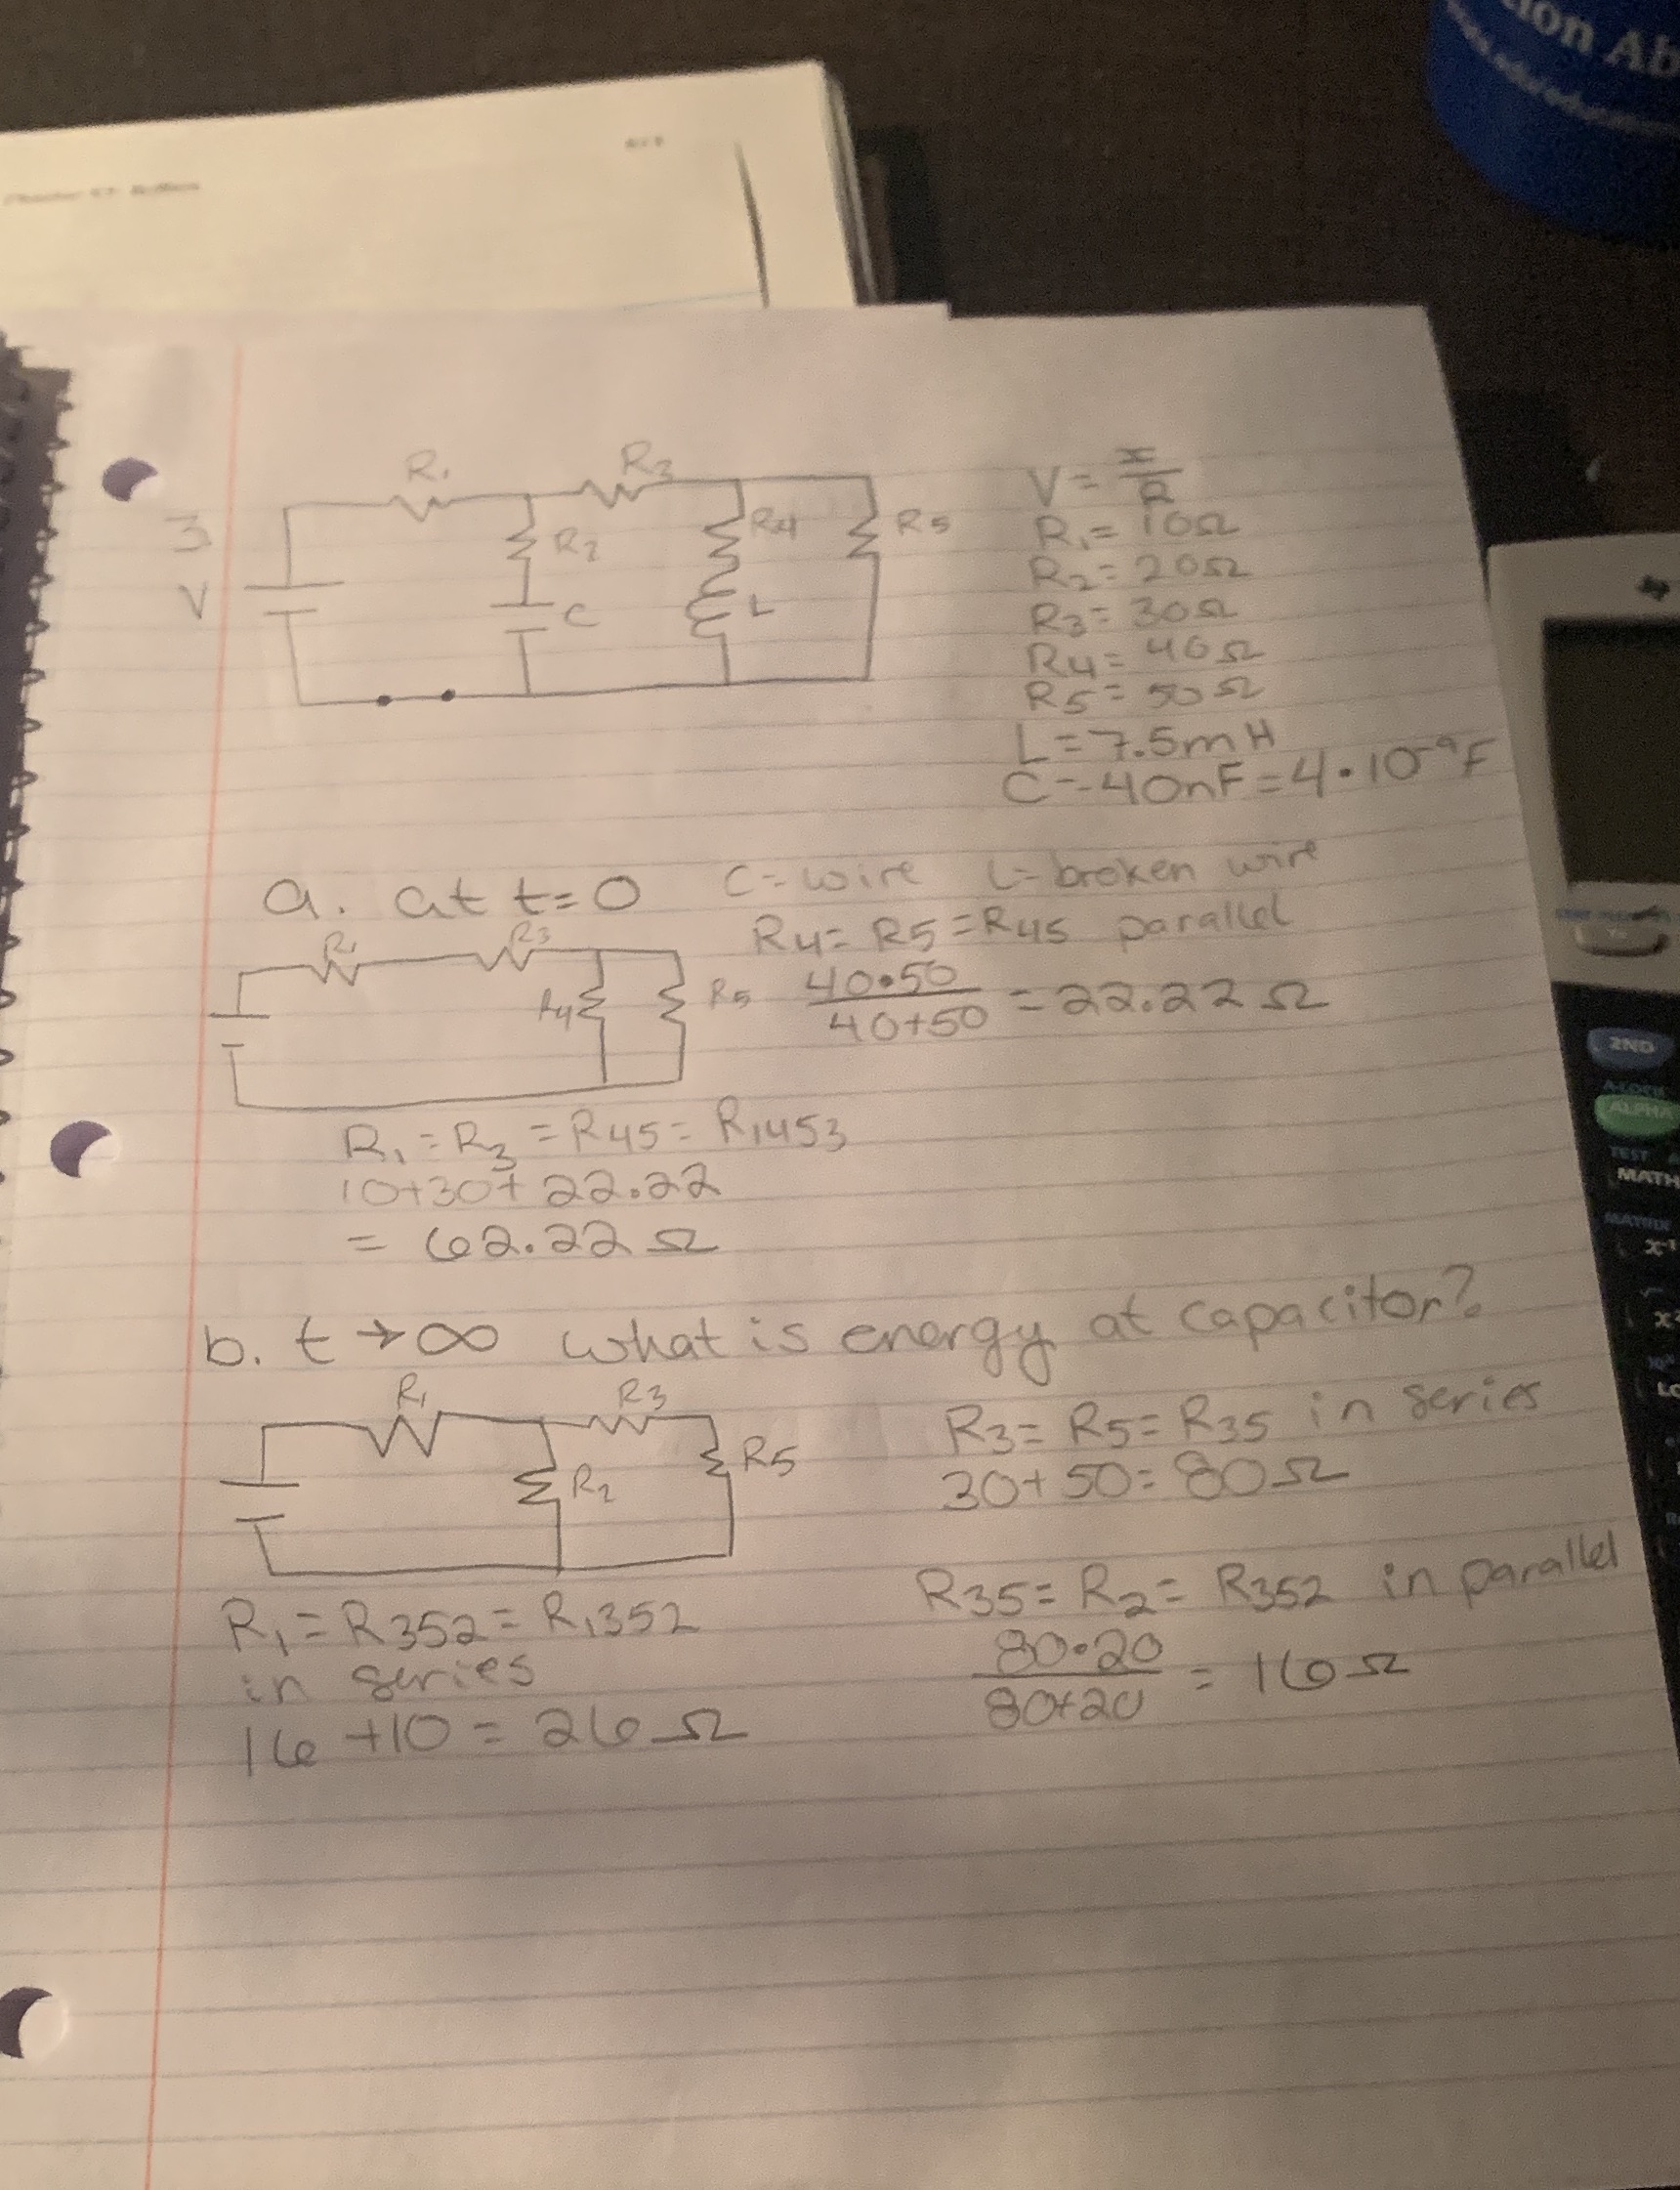 ion Ab
R₁
R₃
3
V
R₂
C
R₄
L
R₅
V = I/R
R₁ = 10Ω
R₂ = 20Ω
R₃ = 30Ω
R₄ = 40Ω
R₅ = 50Ω
L = 7.5mH
C = 40nF = 4•10⁻⁹F
a. at t=0 C= wire L= broken wire
R₁ R₃
R₄ R₅
R₄= R₅ = R₄₅ parallel
40•50 / 40+50 = 22.22 Ω
R₁ = R₃ = R₄₅ = R₁₄₅₃
10+30+ 22.22
= 62.22 Ω
b. t → ∞ what is energy at capacitor?
R₁ R₃
R₂ R₅
R₃= R₅= R₃₅ in series
30+50= 80Ω
R₃₅= R₂= R₃₅₂ in parallel
80•20 / 80+20 = 16Ω
R₁ = R₃₅₂ = R₁₃₅₂
in series
16 +10 = 26 Ω
2ND
A-LOCK
ALPHA
TEST A
MATH
MATRIX
x⁻¹